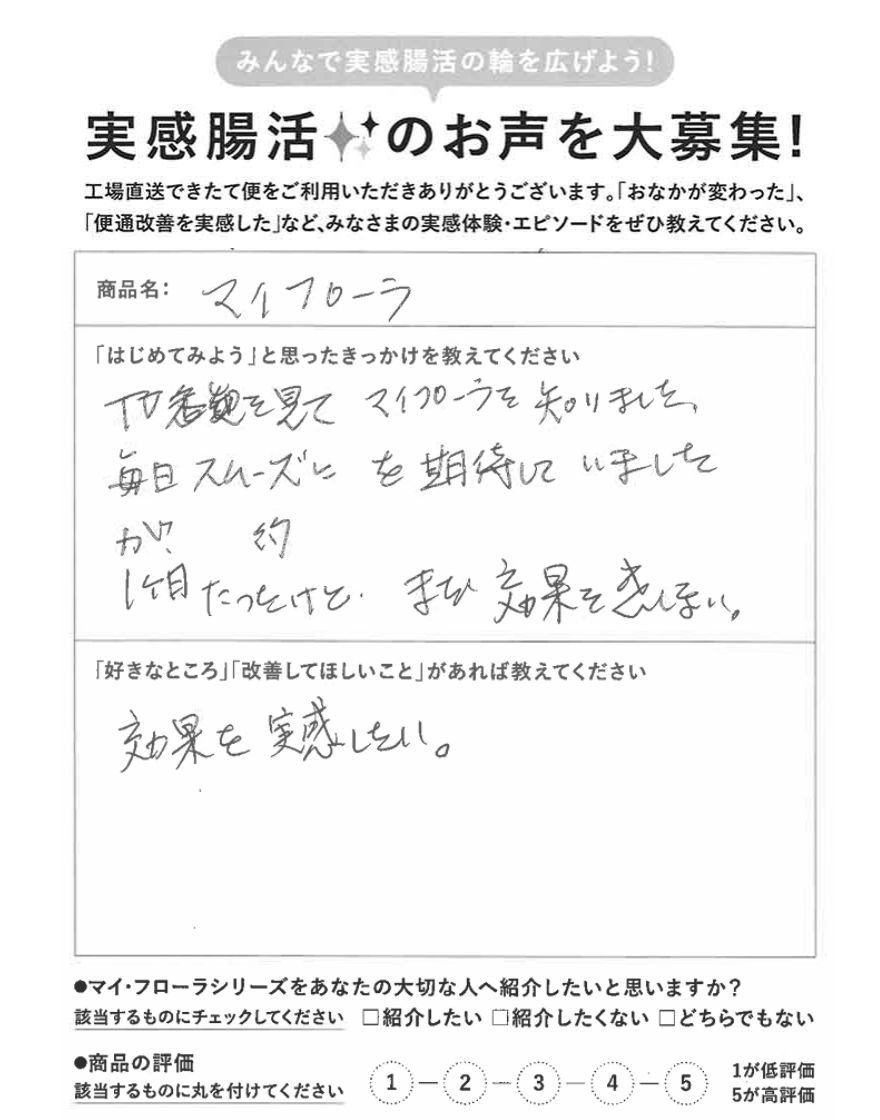 みんなで実感腸活の輪を広げよう!
実感腸活のお声を大募集!
工場直送できたて便をご利用いただきありがとうございます。「おなかが変わった」、
「便通改善を実感した」など、みなさまの実感体験・エピソードをぜひ教えてください。
商品名: マイフローラ
「はじめてみよう」と思ったきっかけを教えてください
を見て マイフローラを 知りました、
毎日 スムーズに を 期待して いました
が、 約
1ヶ月 たったけど、 まだ 効果を 感じない。
「好きなところ」「改善してほしいこと」があれば教えてください
効果を 実感したい。
●マイ・フローラシリーズをあなたの大切な人へ紹介したいと思いますか?
該当するものにチェックしてください □紹介したい □紹介したくない □どちらでもない
●商品の評価
該当するものに丸を付けてください 1 — 2 — 3 — 4 — 5
1が低評価
5が高評価